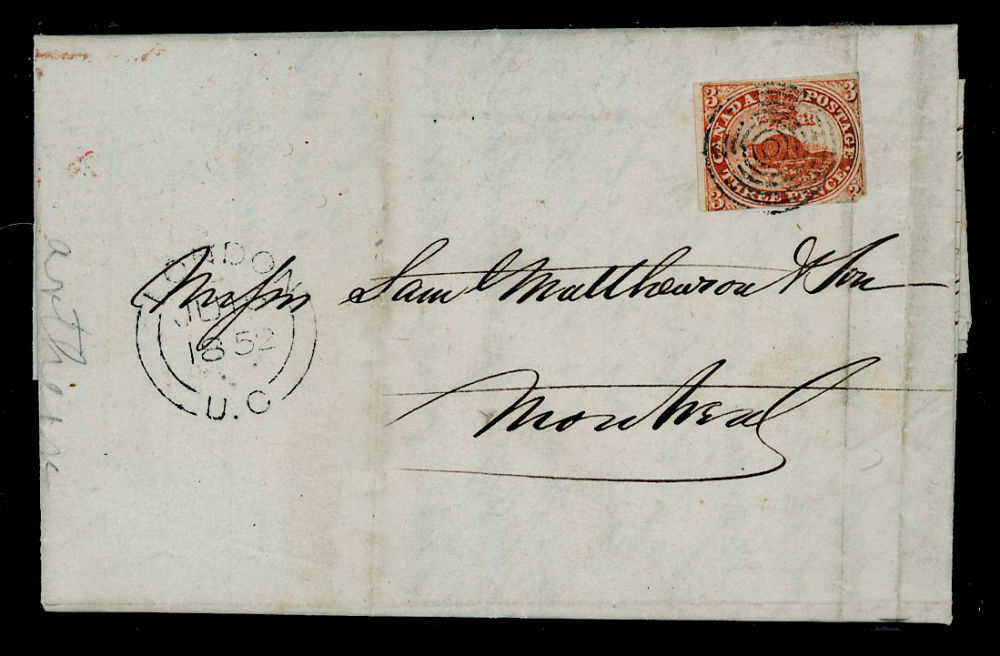 3 CANADA POSTAGE 3
3 THREE PENCE. 3
LONDON
1852
U.C
Messrs Saml Matthewson & Son
Montreal